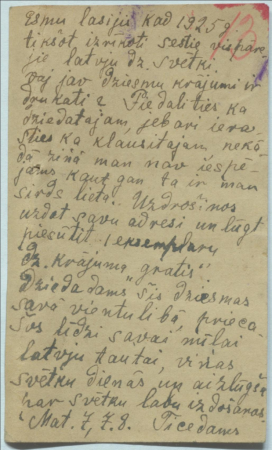 Esmu lasijis kad 1925 g
tikšot izrikoti sestie vispārē
jie latvju dz. svētki
vaj jav dziesmu krājumi ir
drukati? Piedalities ka
dziedatajam, jeb ari iera
sties ka klausitajam neka
dā ziņā man nav iespē
jams kaut gan ta ir man
sirds lieta. Uzdrošinos
uzdot savu adresi un lūgt
piesūtit 1 eksemplaru
dz. krājuma "gratis"
Dziedadams šis dziesmas
savā vientulibā, priecā
šos lidzi savai mīlai
latvju tautai, viņas
svētku dienās un aizlugšu
par svētku labu izdošanos
Mat. 7, 7. 8. Ticedams